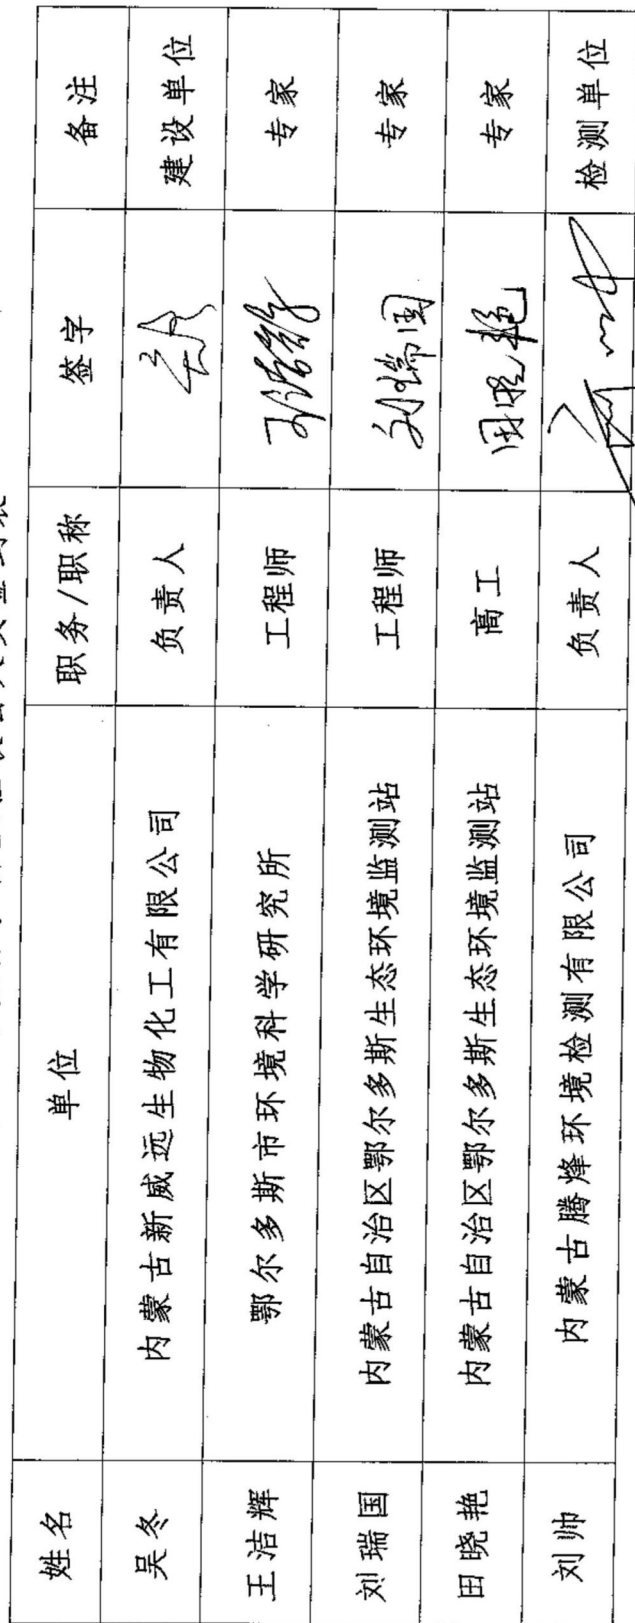 姓名 单位 职务/职称 签字 备注
吴冬 内蒙古新威远生物化工有限公司 负责人 建设单位
王洁辉 鄂尔多斯市环境科学研究所 工程师 专家
刘瑞国 内蒙古自治区鄂尔多斯生态环境监测站 工程师 刘瑞国 专家
田晓艳 内蒙古自治区鄂尔多斯生态环境监测站 高工 田晓艳 专家
刘帅 内蒙古腾烽环境检测有限公司 负责人 检测单位